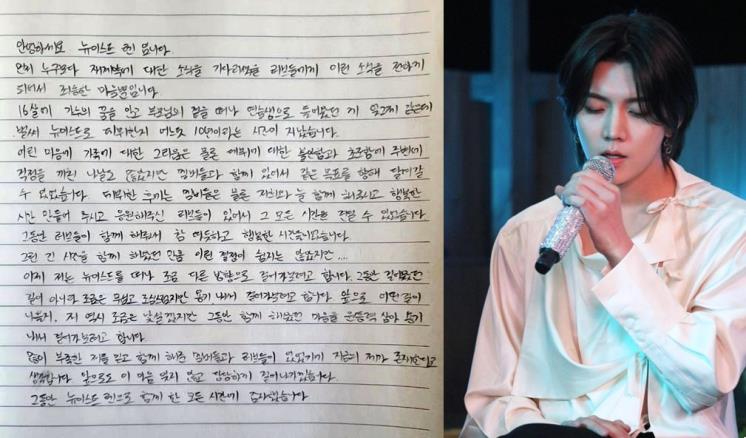 안녕하세요 뉴이스트 렌 입니다.
먼저 누구보다 재계약에 대한 소식을 기다려줬을 러브들에게 이런 소식을 전하게
되어서 죄송한 마음뿐입니다
16살에 가수의 꿈을 안고 부모님의 곁을 떠나 연습생으로 들어왔던 게 엊그제 같은데
벌써 뉴이스트로 데뷔한지 어느덧 10년이라는 시간이 지났습니다.
어린 마음에 가족에 대한 그리움은 물론 데뷔에 대한 불안함과 초조함에 주변에
걱정을 끼친 나날도 많았지만 멤버들과 함께 있어서 같은 목표를 향해 달려갈
수 있었습니다. 데뷔한 후에는 멤버들은 물론 저희와 늘 함께 해주시고 행복한
시간 만들어 주시고 응원해주신 러브들이 있어서 그 모든 시간을 견딜 수 있었습니다
그동안 러브들이 함께 해줘서 참 따뜻하고 행복한 시간들이었습니다.
그런 긴 시간을 함께 해왔던 만큼 이런 결정이 쉽지는 않았지만...
이제 저는 뉴이스트를 떠나 조금 다른 방향으로 걸어가려고 합니다. 그동안 걸어왔던
길이 아니라 조금은 무섭고 조심스럽지만 용기 내서 걸어가려고 합니다 앞으로 어떤 길이
나올지, 저 역시 조금은 낯설겠지만 그동안 함께 해왔던 마음을 원동력 삼아 용기
내서 걸어가려고 합니다.
많이 부족한 저를 믿고 함께 해준 멤버들과 러브들이 있었기에 지금의 제가 존재한다고
생각합니다 앞으로도 이 마음 잊지 않고 성실하게 걸어나가겠습니다.
그동안 뉴이스트 렌으로 함께 한 모든 시간에 감사했습니다.